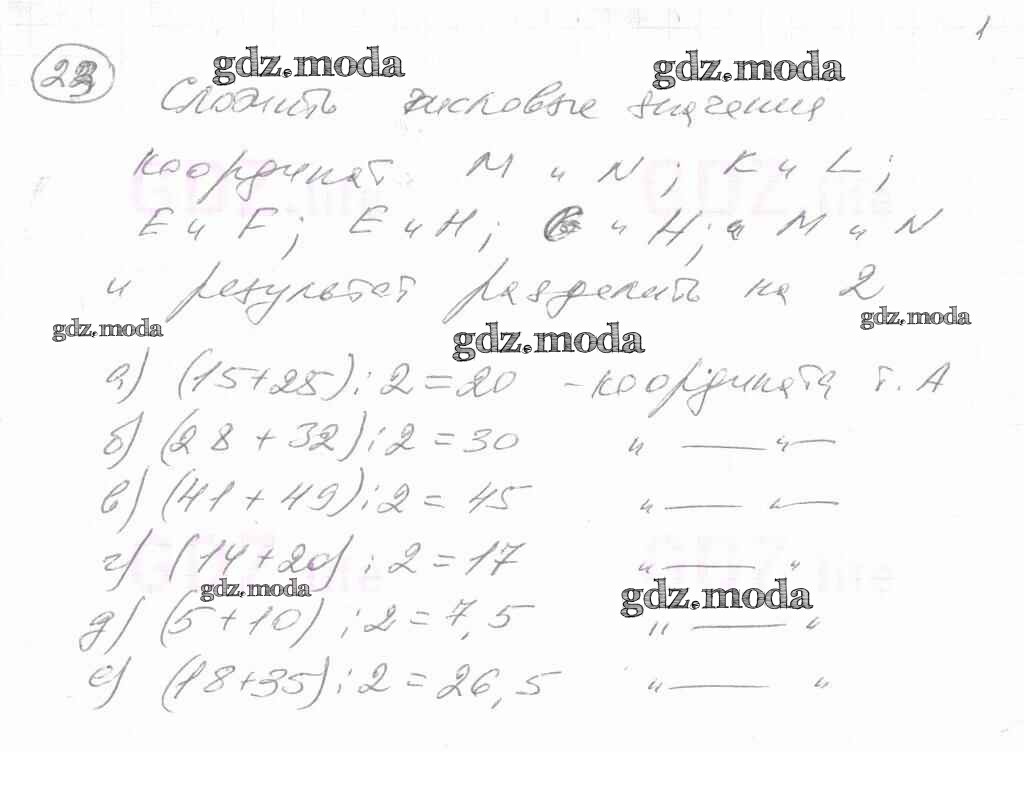 1
23
gdz.moda gdz.moda
Сложить числовые значения
координат M и N; K и L;
E и F; E и H; G и H; и M и N
и результат разделить на 2
gdz.moda gdz.moda gdz.moda
а) (15+25):2=20 - координата т. A
б) (28+32):2=30 " — " —
в) (41+49):2=45 " — " —
г) (14+20):2=17 " — "
gdz.moda gdz.moda
д) (5+10):2=7,5 " — "
е) (18+35):2=26,5 " — "